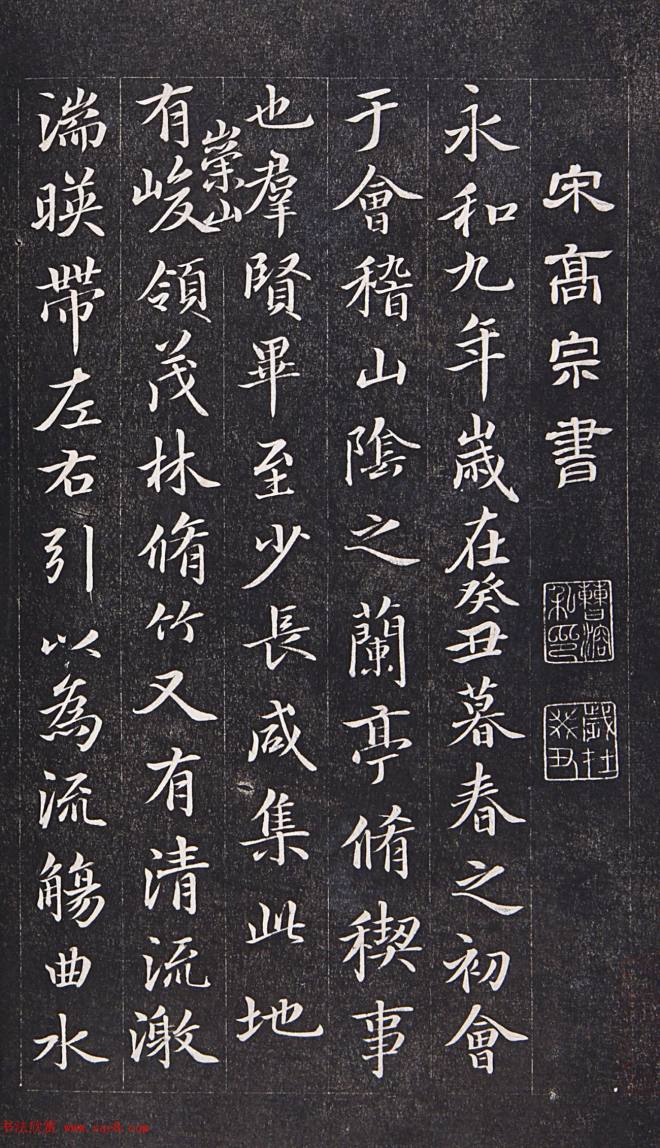 宋髙宗書
曹溶私印
歲在癸丑
永和九年歲在癸丑暮春之初會
于會稽山陰之蘭亭脩稧事
也羣賢畢至少長咸集此地
有崇山峻領茂林脩竹又有清流激
湍暎帶左右引以為流觴曲水
书法欣赏 www.yac8.com